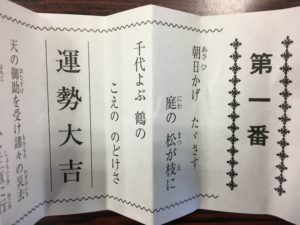 第一番
朝日かげ たゞさす
庭の 松が枝に
千代よぶ 鶴の
こえの のどけさ
運勢大吉
天の御助を受け諸々の災衣